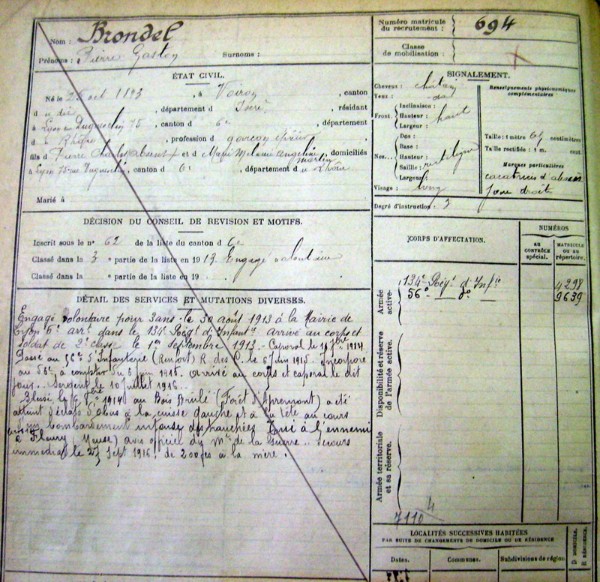 Nom : Brondel
Prénoms : Pierre Gaston Surnoms :
Numéro matricule du recrutement : 694
Classe de mobilisation :
ÉTAT CIVIL.
Né le août 1893, à Voiron, canton
du dit, département d Isère, résidant
à Lyon Duguesclin 75, canton d 6e, département
d Rhône, profession d garçon
fils d Pierre et d Marie domiciliés
à Lyon, canton d 6, département d Rhône
Marié à
SIGNALEMENT.
Cheveux : chatain
Yeux :
Front. Inclinaison :
Hauteur : haut
Largeur :
Nez. Dos :
Base :
Hauteur :
Saillie : rectiligne
Largeur :
Visage : long
Renseignements physionomiques complémentaires
Taille : 1 mètre centimètres
Taille rectifiée : 1 m.
Marques particulières
joue droite
Degré d'instruction : 3
DÉCISION DU CONSEIL DE REVISION ET MOTIFS.
Inscrit sous le n° 62 de la liste du canton d 6e
Classé dans la 3 partie de la liste en 1913 Engagé volontaire
Classé dans la partie de la liste en 19
DÉTAIL DES SERVICES ET MUTATIONS DIVERSES.
Engagé volontaire pour 3 ans le 30 août 1913 à la Mairie de
Lyon 6e arrt dans le 134e Régt d'Infantie arrivé au corps et
soldat de 2e classe le 1er septembre 1913. Caporal le 1914
Passé au 56e d'Infanterie (Renfort) le 6 juin 1915. Incorporé
au 56e à compter du 6 juin 1915. Arrivé au corps et caporal le dit
jour. Sergent le 10 juillet 1916.
Blessé le 6 1914 au Bois Brulé (Forêt d'Apremont) a été
atteint d'éclats d'obus à la cuisse gauche et à la tête au cours
d'un bombardement intense des tranchées Tué à l'ennemi
à Fleury Meuse) avis officiel du Mre de la Guerre. Secours
immédiat le Sept 1916 de 200 frs à la mère.
CORPS D'AFFECTATION.
NUMÉROS
au contrôle spécial.
MATRICULE ou au répertoire.
Armée active.
134e Régt d'Infie 4298
56e do 9639
Disponibilité et réserve de l'armée active.
Armée territoriale et sa réserve.
LOCALITÉS SUCCESSIVES HABITÉES
PAR SUITE DE CHANGEMENTS DE DOMICILE OU DE RÉSIDENCE
Dates.
Communes.
Subdivisions de région.
D. DOMICILE.
R. RÉSIDENCE.